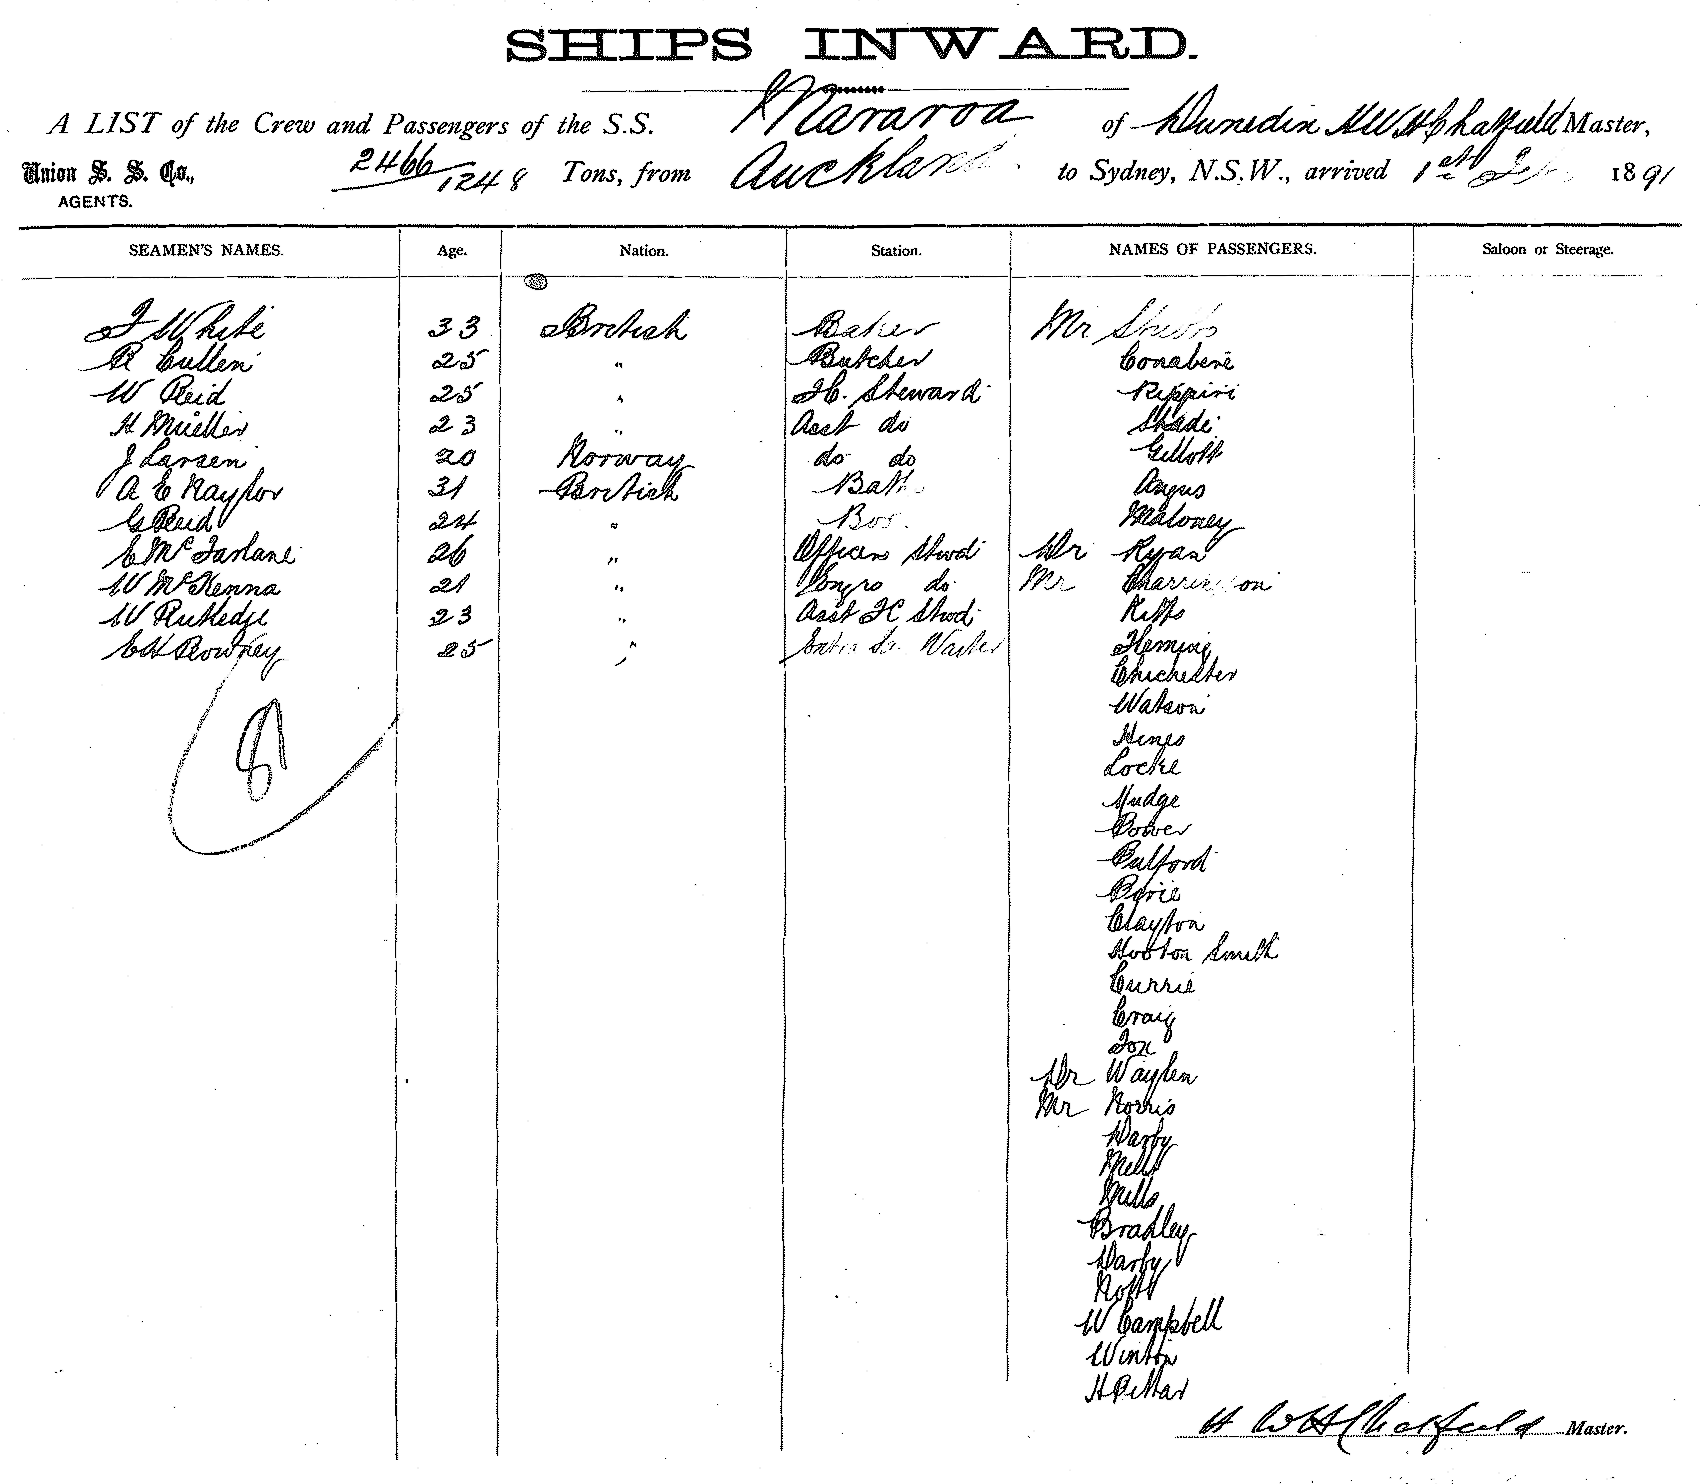 SHIPS INWARD.
A LIST of the Crew and Passengers of the S.S. Mararoa of Dunedin H W H Chatfield Master,
Union S. S. Co., 2466/1248 Tons, from Auckland to Sydney, N.S.W., arrived 1st Feb 1891
AGENTS.
SEAMEN'S NAMES. Age. Nation. Station. NAMES OF PASSENGERS. Saloon or Steerage.
J White 33 British Baker Mr
R Cullen 25 " Butcher Conabere
W Reid 25 " F.C. Steward
H Mueller 23 " Asst do Shade
J Larsen 20 Norway do do Gillott
A E Naylor 31 British Bath Angus
G Reid 24 " Maloney
E McFarlane 26 " Officers Stwd Dr Ryan
W McKenna 21 " Engrs do Mr Charrington
W Rutledge 23 " Asst F C Stwd Kitts
E H Rowney 25 " Fleming
Chichester
Watson
Hines
Locke
Mudge
Power
Pulford
Pirie
Clayton
Hooton Smith
Currie
Craig
Fox
Dr Waylen
Mr Norris
Darby
Mills
Bradley
Darby
W Campbell
Winton
H Pittar
H W H Chatfield Master.